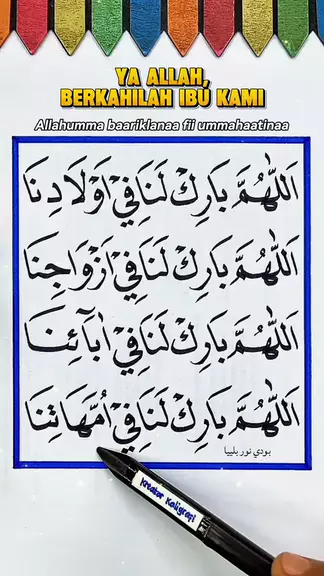 YA ALLAH,
BERKAHILAH IBU KAMI
Allahumma baariklanaa fii ummahaatinaa
اَللّٰهُمَّ بَارِكْ لَنَا فِيْ اَوْلَادِنَا
اَللّٰهُمَّ بَارِكْ لَنَا فِيْ اَزْوَاجِنَا
اَللّٰهُمَّ بَارِكْ لَنَا فِيْ اٰبَآئِنَا
اَللّٰهُمَّ بَارِكْ لَنَا فِيْ اُمَّهَاتِنَا
بودي نور بلييا
Kreator Kaligrafi